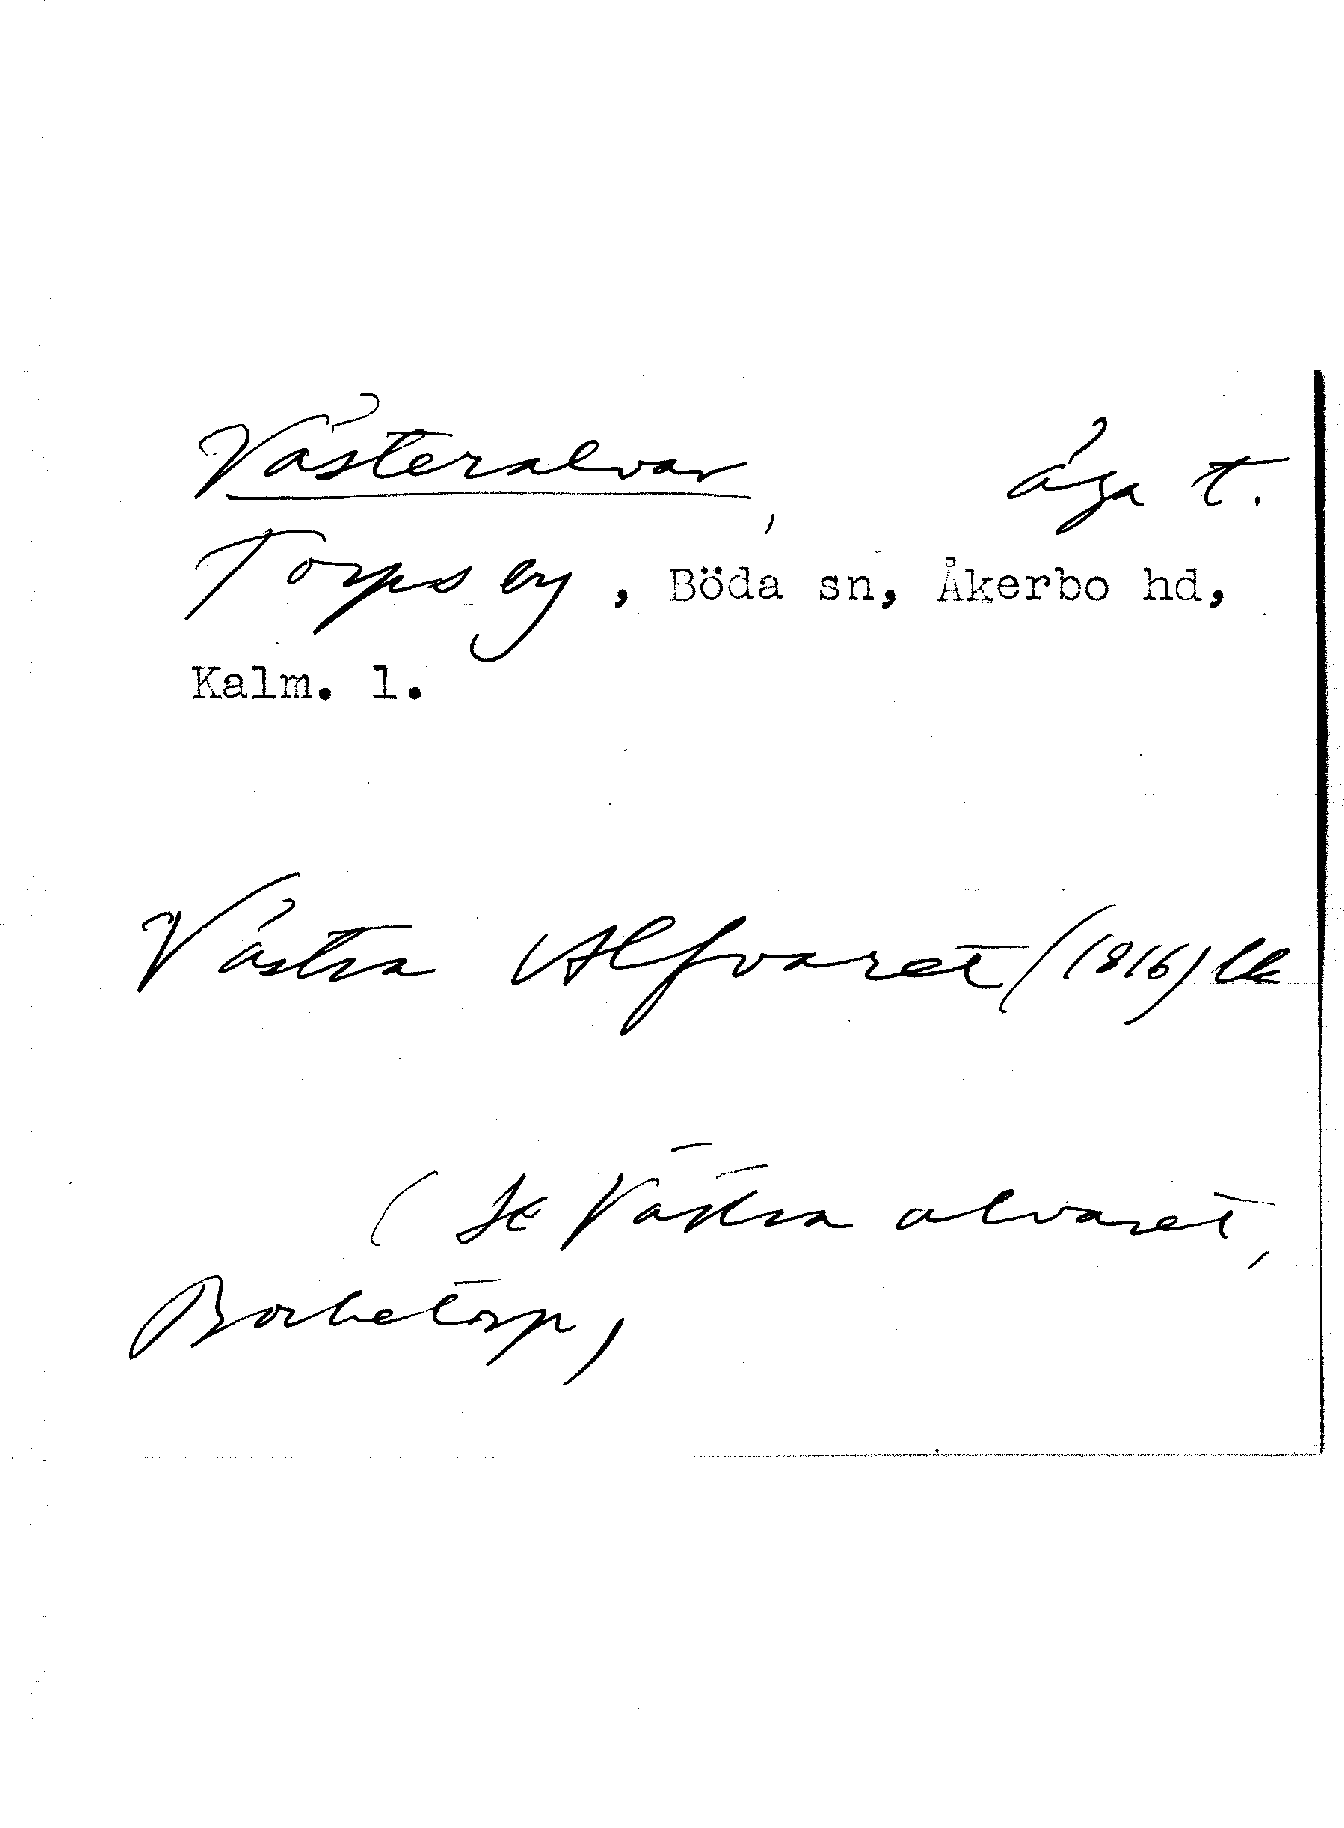 Västeralvar, äga t.
Torps by, Böda sn, Åkerbo hd,
Kalm. l.
Västra Alfvaret (1816) lk
(Se Västra alvaret,
Bocketorp)